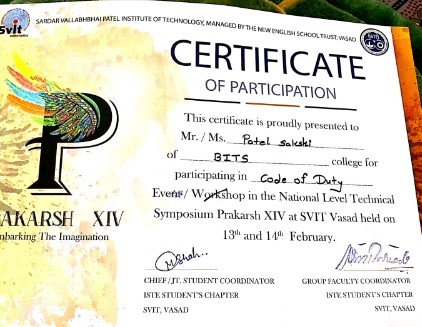 Svit
SARDAR VALLABHBHAI PATEL INSTITUTE OF TECHNOLOGY, MANAGED BY THE NEW ENGLISH SCHOOL TRUST, VASAD
CERTIFICATE
OF PARTICIPATION
This certificate is proudly presented to
Mr. / Ms. Patel Sakshi
of BITS college for
participating in Code of Duty
Event / Workshop in the National Level Technical
Symposium Prakarsh XIV at SVIT Vasad held on
13th and 14th February.
P
RAKARSH XIV
mbarking The Imagination
CHIEF / JT. STUDENT COORDINATOR
ISTE STUDENT'S CHAPTER
SVIT, VASAD
GROUP FACULTY COORDINATOR
ISTE STUDENT'S CHAPTER
SVIT, VASAD